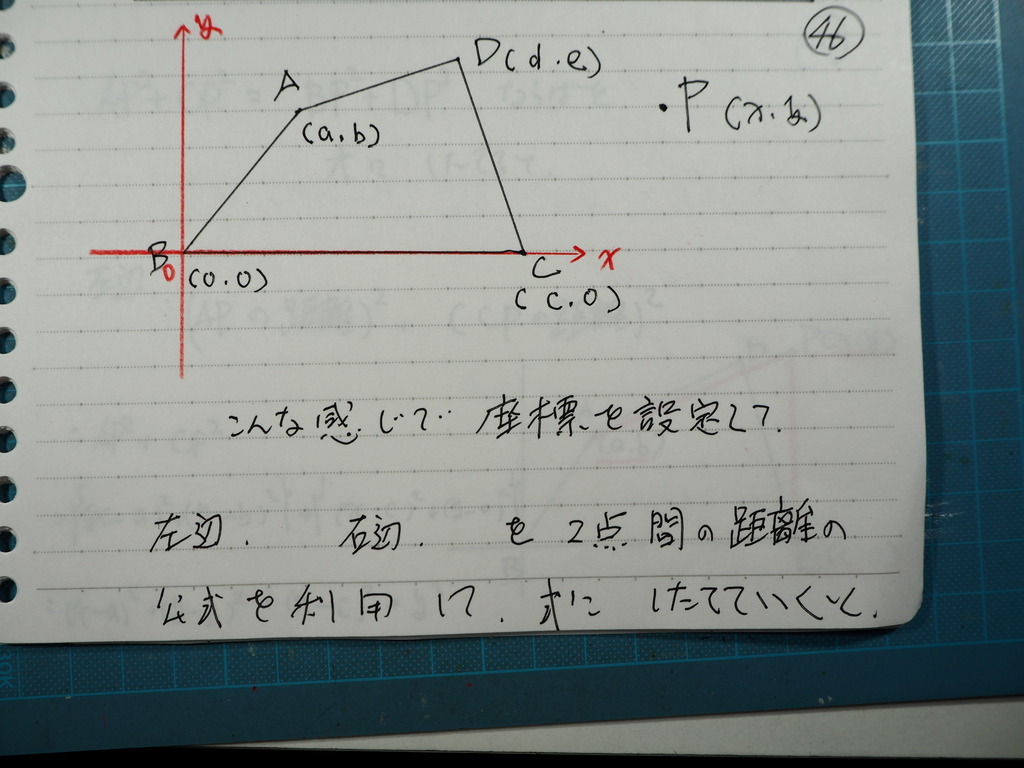 46
y
D(d.e)
A
・P (x.y)
(a.b)
B
0
(0.0)
C
x
(c.0)
こんな感じで 座標を設定して.
左辺. 右辺. を 2点間の距離の
公式を利用して. 式に したてていくと.